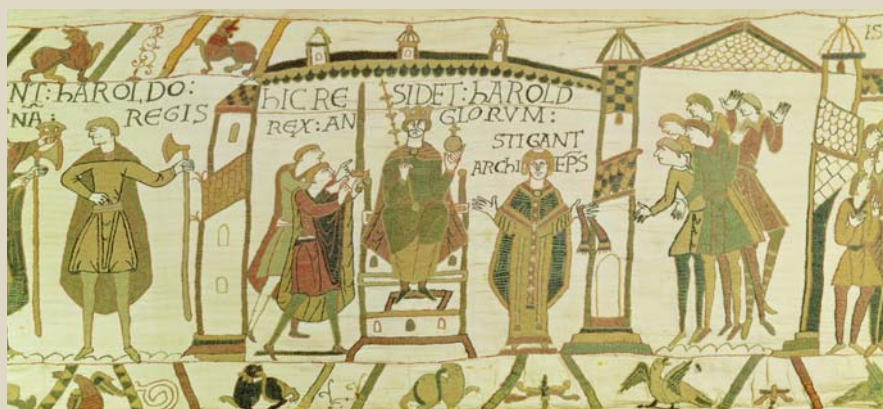 NT: hAROLDO:
NA: REGIS
hIC RE SIDET: hAROLD
REX: AN GLORVM:
STIGANT
ARChI EPS
IS